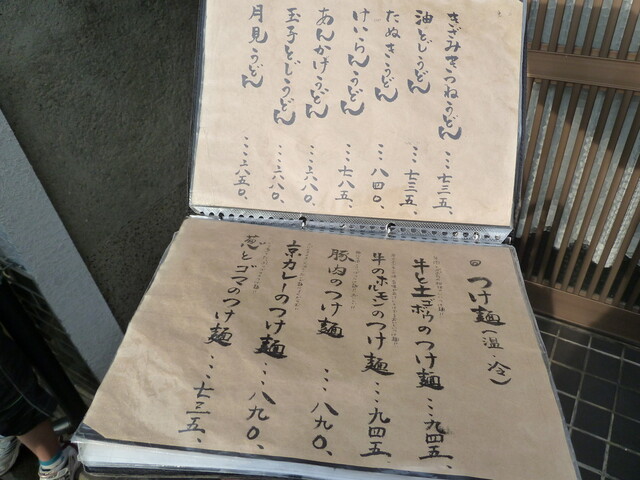 きざみきつねうどん…七三五、
油とじうどん…七三五、
たぬきうどん…八四〇、
けいらんうどん…七八五、
あんかけうどん…六八〇、
玉子とじうどん…六八〇、
月見うどん…六五〇、
つけ麺(温・冷)
牛と土ゴボウのつけ麺…九四五、
牛のホルモンのつけ麺…九四五、
豚肉のつけ麺…八九〇、
京カレーのつけ麺…八九〇、
葱とゴマのつけ麺…七三五、